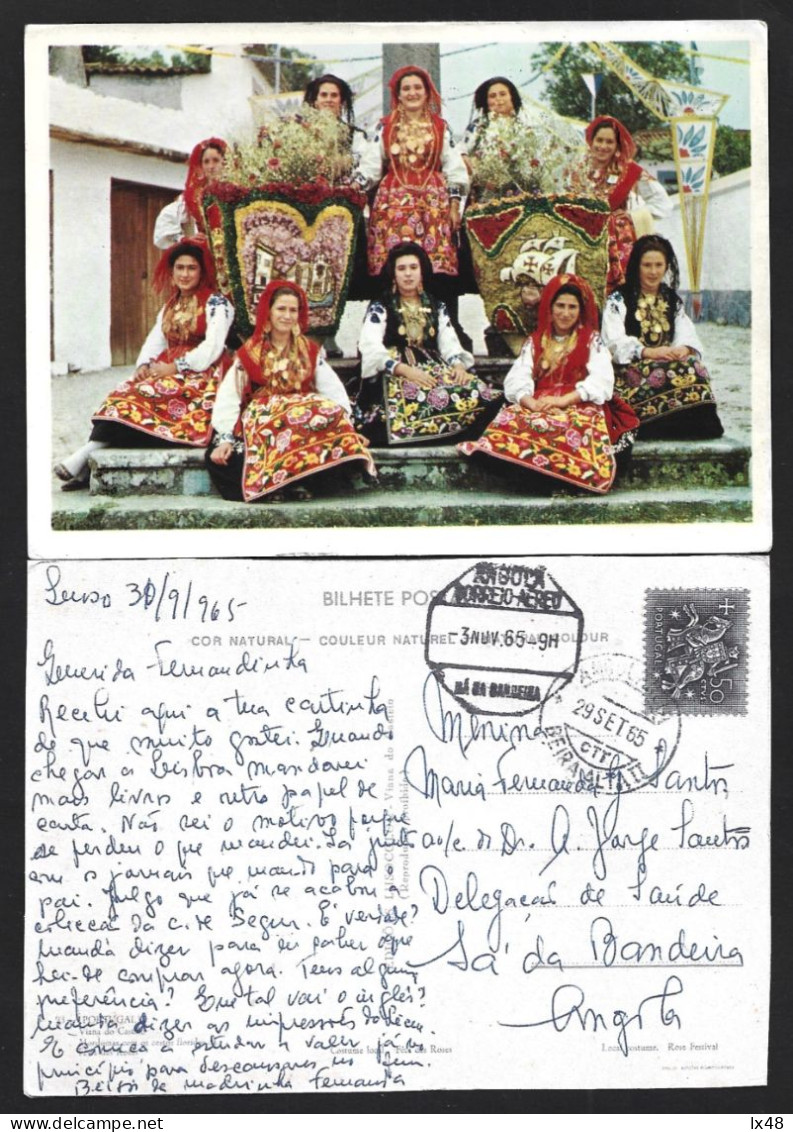 BILHETE POS
COR NATURAL — COULEUR NATUREL
ANGOLA
CORREIO AEREO
-3NOV.65-9H
SÁ DA BANDEIRA
PORTUGAL
50
29 SET 65
CTT
BEIRA ALTA
Luso 30/9/965
Querida Fernandinha
Recebi aqui a tua cartinha
de que muito gostei. Quando
chegar a Lisboa mandarei
mais livros e outro papel de
carta. Não sei o motivo porque
se perdeu o que mandei.
com os jornais que mando para o
pai. Julgo que já se acabou a
colecção da C. de Segur. É verdade?
Manda dizer para eu saber o que
hei-de comprar agora. Tens alguma
preferência? E que tal vai o inglês?
Manda dizer as impressões do liceu.
e começa a estudar a valer já no
princípio para descansares no fim.
Beijos da madrinha Fernanda
Menina
Maria Fernanda J. Santos
a/c do Dr. A. Jorge Santos
Delegação de Saúde
Sá da Bandeira
Angola
PORTUGAL
Viana do Castelo
Costume local. Fête des Roses
Local costume. Rose Festival
lx48